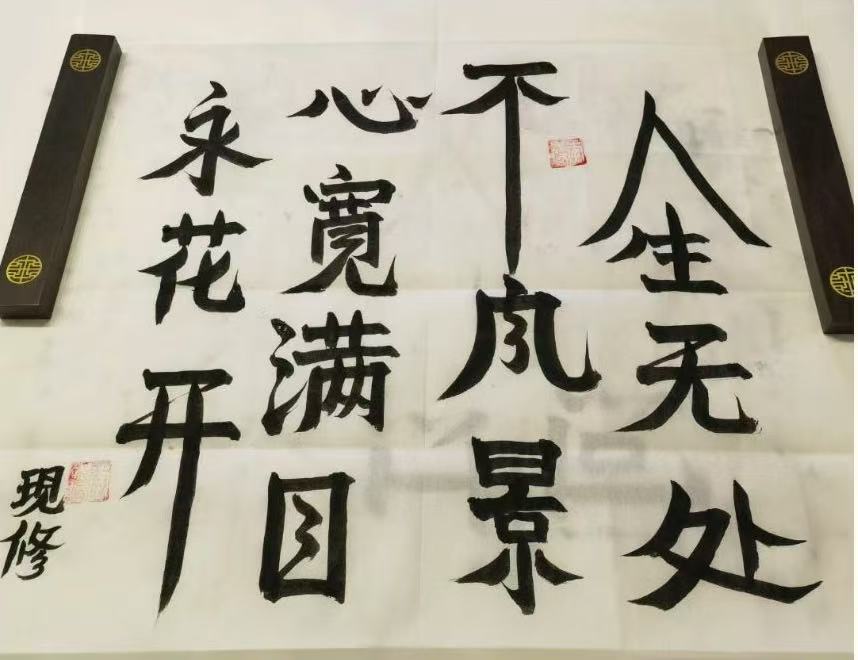 人生无处
不风景
心宽满目
永花开
现修